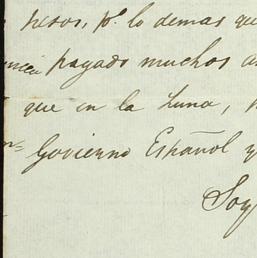 pesos, p.r lo demas que
pagado muchos a
que en la Luna,
Govierno Español y
Soy